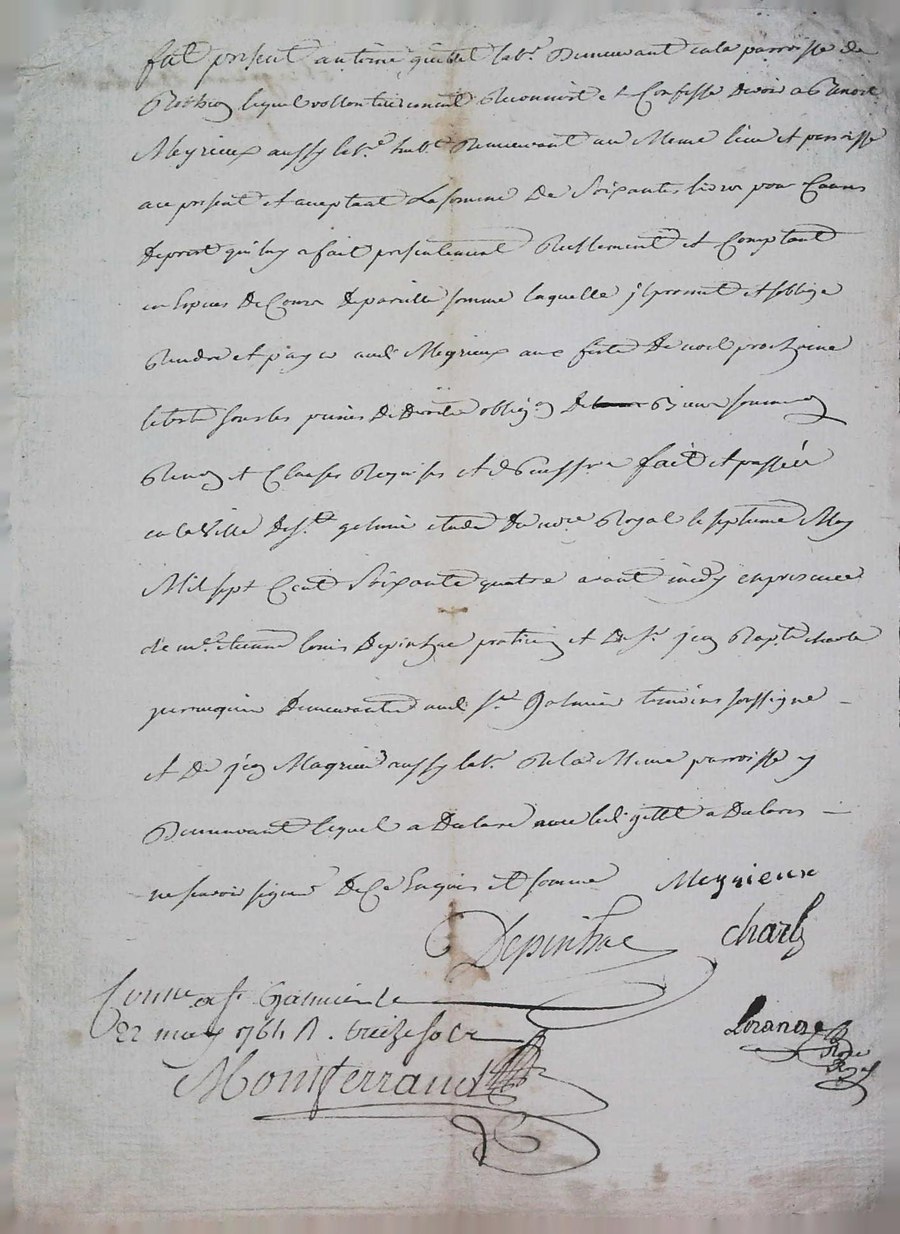 fut present antoine guittel lab.r Demeurant en la parroisse de
lequel vollontairement Reconnoit et Confesse Devoir a Benoit
Meyrieux aussy lab.r hab.t Demeurant au Meme lieu et parroisse
ace present et acceptant La somme De Soixantes livres pour Cause
De prest qu'il luy a fait presentement Reellement et Comptant
en Especes De Cours De pareille somme laquelle jl promet et soblige
Rendre et payer aud. Meyrieux aux feste De noel prochaine
le tout sous les peines De Droit oblig.on De Biens soumission
Renon et Clauses Requises et fait et passée
en la Ville De S.t galmier etude Du no.re Royal le septieme May
Mil sept Cent Soixante quatre avant midy en presence
de m.e etienne louis Depinhac praticien et De S.r jean Bapt.e charle
perruquier Demeurants aud. S.t Galmier temoins soussigné
et De jean Magrieu aussy lab.r De la Meme parroisse y
Demeurant lequel a Declaré led. a Declaré
ne sçavoir signer De Ce Enquis et sommé Meyrieux
Depinhac charle
Conne a St. Galmier le
22 may 1764 R. treize sols
Monterrand